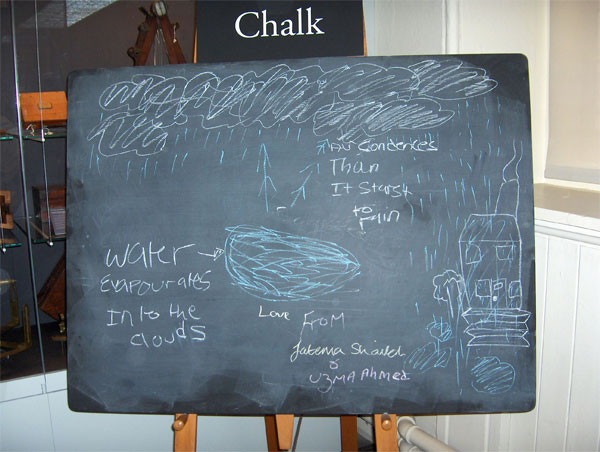 Chalk
Air Condences
Than
It Starst
to rain
water
Evapourates
Into the
clouds
Love From
fatema Shaikh
&
UZMA Ahmed